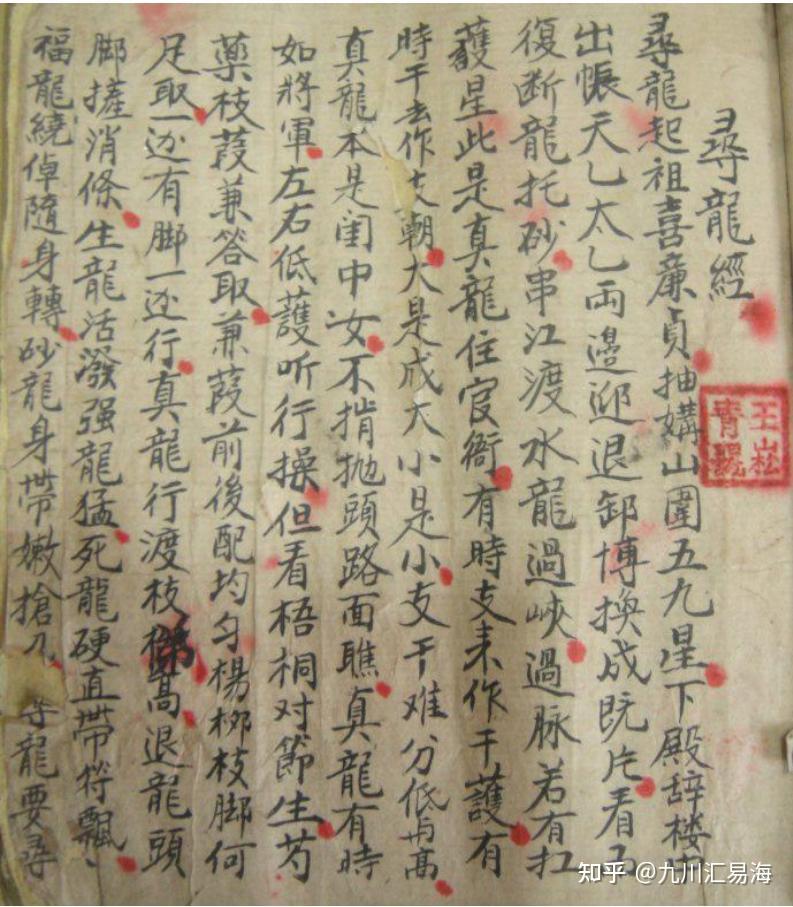 尋龍經
尋龍起祖喜廉貞抽媾山圍五九星下殿辞楼
出帳天乙太乙両邉迎退卸博換成既片看
復断龍托砂串江渡水龍過峽過脉若有扛
護星此是真龍住官衙有時支来作干護有
時干去作支朝大是成大小是小支干难分低与高
真龍本是闺中女不掯抛頭路面瞧真龍有時
如將軍左右低護听行操但看梧桐对節生芍
薬枝葭兼答取蒹葭前後配均匀楊柳枝脚何
足取一边有脚一边行真龍行渡枝高退龍頭
脚搓消條生龍活潑强龍猛死龍硬直帶符飄
福龍繞倬隨身轉砂龍身带嫩搶尋龍要尋
王崧
青
知乎 @九川汇易海